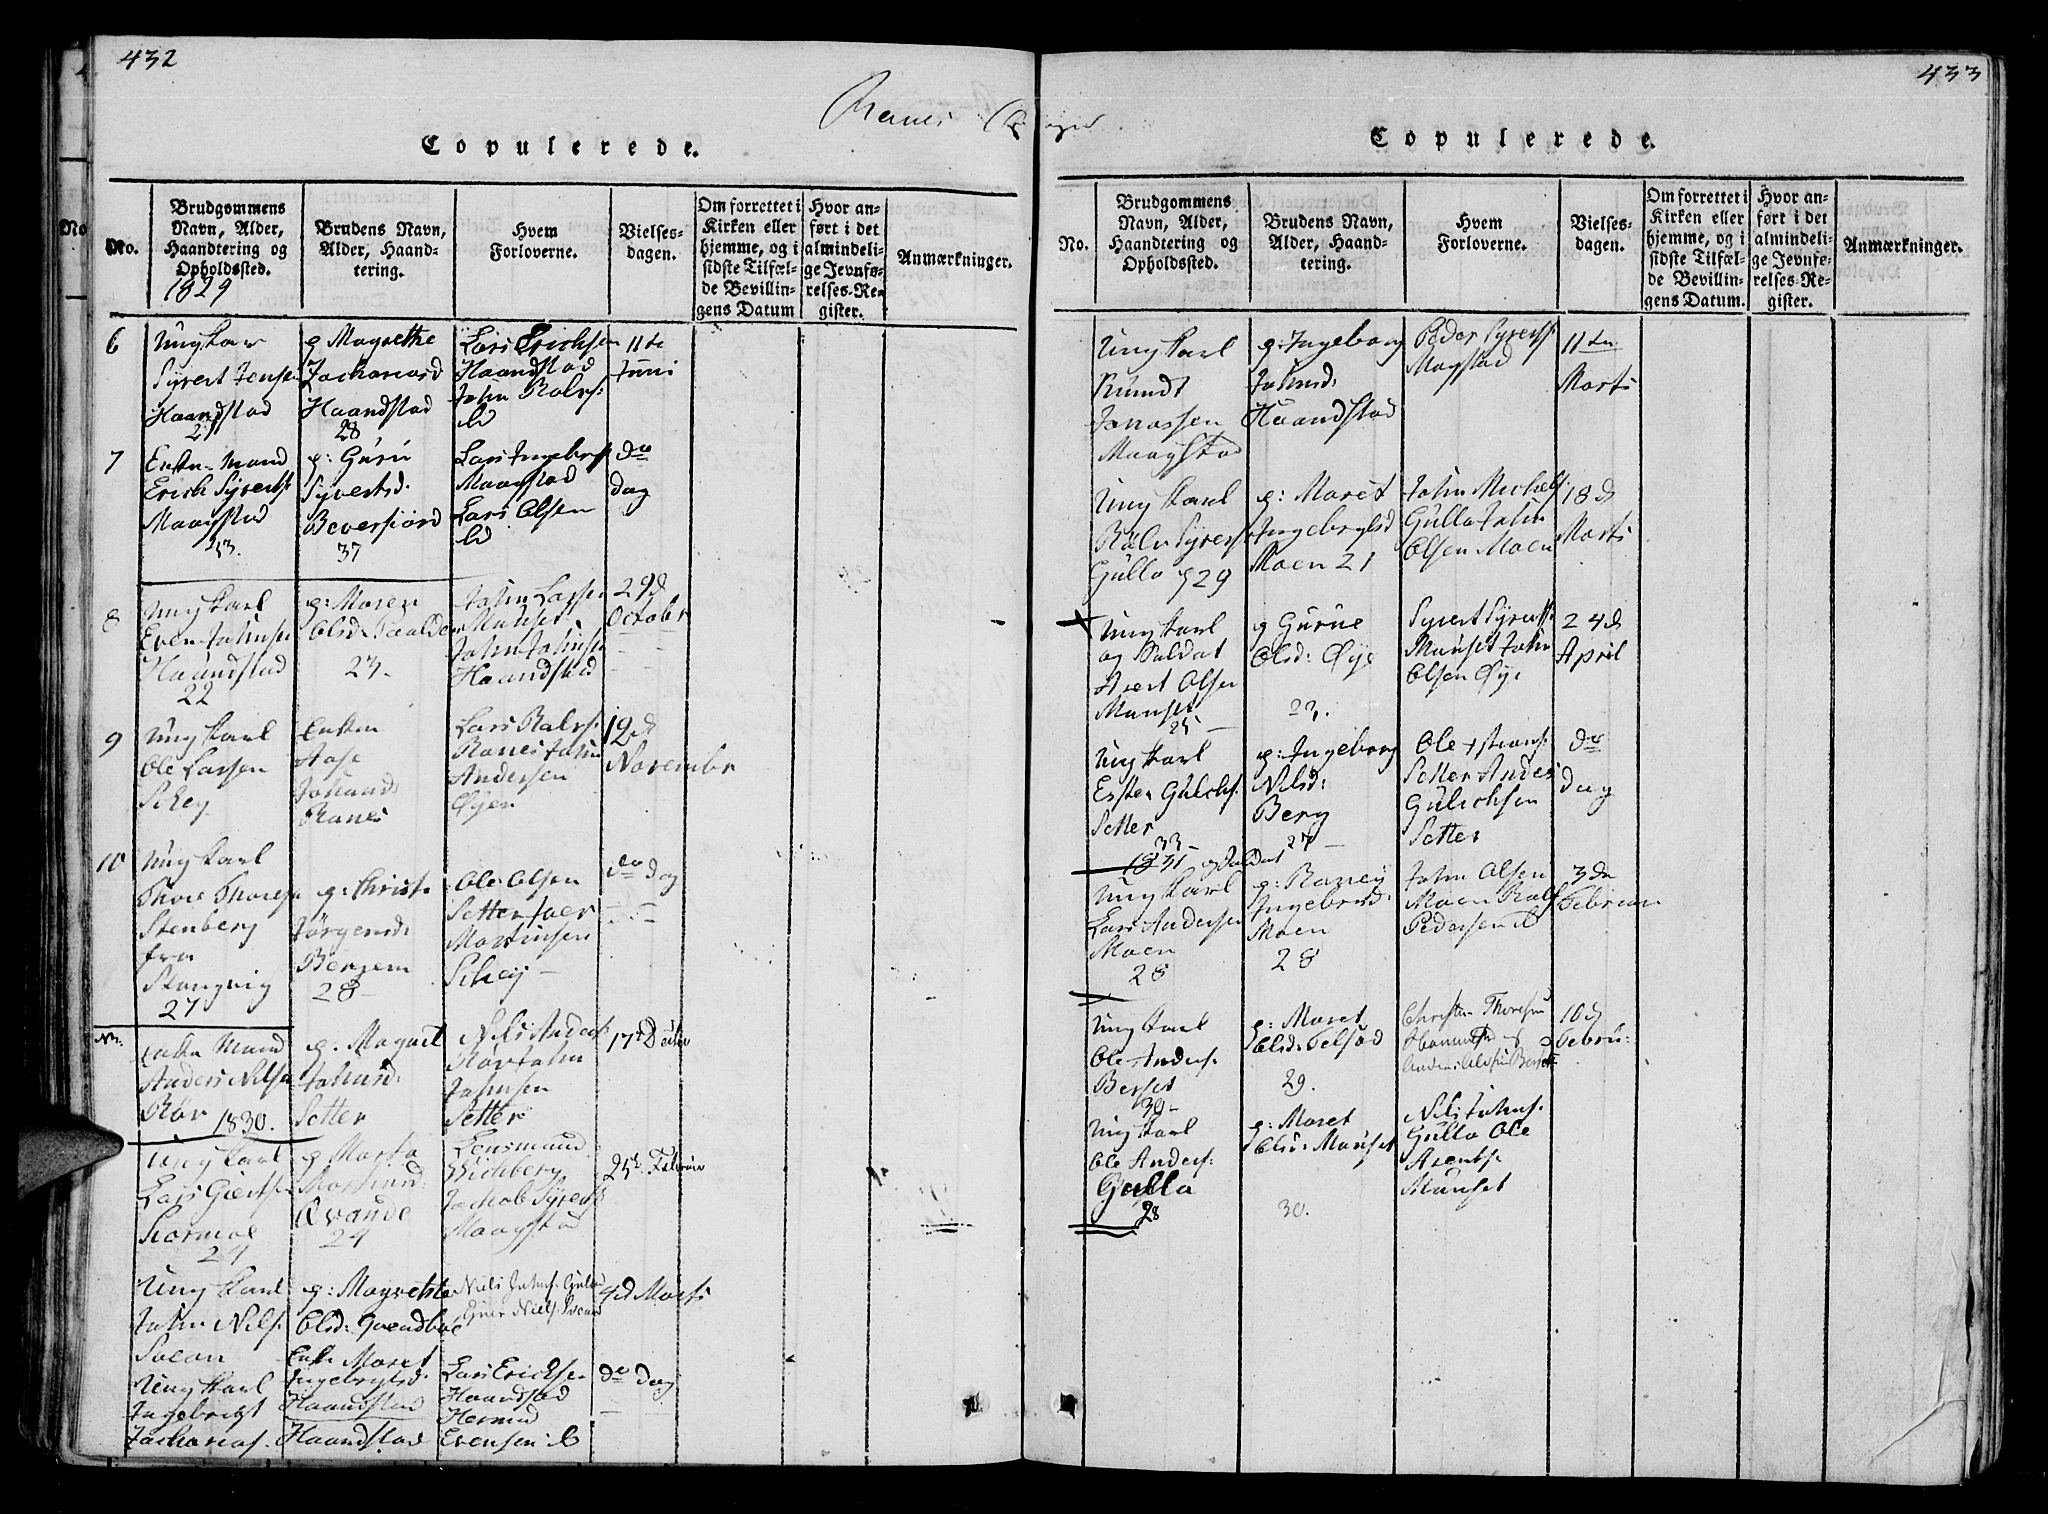 432
433
Ranes
Copulerede.
No.
Brudgommens
Navn, Alder,
Haandtering og
Opholdssted.
Brudens Navn,
Alder, Haand-
tering.
Hvem
Forloverne.
Vielses-
dagen.
Om forrettet i
Kirken eller
hjemme, og i
sidste Tilfæl-
de Bevillin-
gens Datum
Hvor an-
ført i det
almindeli-
ge Jevnfø-
relses-Re-
gister.
Anmærkninger.
1829
6
Ung Karl
Syvert Jens
Haandstad
g Magrethe
Zachariasd
Haandstad
28
Lars Erichsen
Haandstad
John Rolvs:
ibd
11te
Juni
7
Enke-Mand
Erich Syverts
Maagstad
53.
g: Guru
Syvertsd.
Beverfiord
37
Lars Ingebr
Maagstad
Lars Olsen
ibd
do
dag
8
Ung Karl
Even Johnsen
Haandstad
22
g: Maren
Olsd:
23.
John Larsen
Mauset
John Johnsen
Haandstad
29d
October
9
Ung Karl
Ole Larsen
Schey
Enken
Aase
Johand:
Ranes
Lars Rolvs:
Ranes John
Andersen
Øyen
12d
November
10
Ung Karl
Thore Thoresen
Stenberg
fra
Stangvig
27
g: Christi
Jørgensd:
Bergem
28
Ole Olsen
Setter Joer
Mortinsen
Schey
do dag
Enke Mand
Anders Nilsen
Røv
g: Magnil
Johnsd:
Setter
Nils Anders:
Røv John
Johnsen
Setter
17de
1830.
Ung Karl
Lars Giertsen
24
g Marta
Mortensd:
Qvande
24
Lensmand
Wichberg
Jachob Syverts
Maagstad
25d Februar
Ung Karl
John Nils:
Svean
g: Magrethe
Olsd: Gvendboe
Niels Johns:
Niels: Svean
4d Marts
Ung Karl
Ingebrigt
Zacharias.
Enke Maret
Ingebrigtsd.
Haandstad
Haandstad
Lars Erichsen
Haandstad
Evensen ib
do dag
Copulerede.
No.
Brudgommens
Navn, Alder,
Haandtering og
Opholdssted.
Brudens Navn,
Alder, Haand-
tering.
Hvem
Forloverne.
Vielses-
dagen.
Om forrettet i
Kirken eller
hjemme, og i
sidste Tilfæl-
de Bevillin-
gens Datum.
Hvor an-
ført i det
almindeli-
ge Jevnfø-
relses-Re-
gister.
Anmærkninger.
Ung Karl
Knundt
Jonassen
Maagstad
g: Ingeborg
Johnsd:
Haandstad
Peder Syverts:
Magstad
11te
Marts
Ung Karl
Rolv Syverts
Gulla 29
g: Maret
Ingebrigtsd
Moen 21
John Michels:
Gulla John
Olsen Moen
18d
Marts
Ung Karl
og Soldat
Arent Olsen
Mauset
25
g Gurue
Olsd: Øye
23.
Syvert Syverts:
Mauset John
Olsen Øye
24d
April
Ung Karl
Esten Gulichs.
Setter
33
g: Ingeborg
Nilsd:
Berg
27
Ole
Setter Anders
Gulichsen
Setter
do
dag
1831 og Soldat
Ung Karl
Lars Andersen
Moen
28
g: Raney
Ingebrsd:
Moen
28
John Olsen
Moen Rolf
Pedersen ib
3de
Februar
Ung Karl
Ole Anders:
Berset
30
g: Maret
Olsd:
29.
Christen Thoresen
Berset
10d
Febru:
Ung Karl
Ole Anders:
Gulla
28
g: Maret
Olsd: Mauset
30.
Nils Johns:
Gulla Ole
Arents:
Mauset